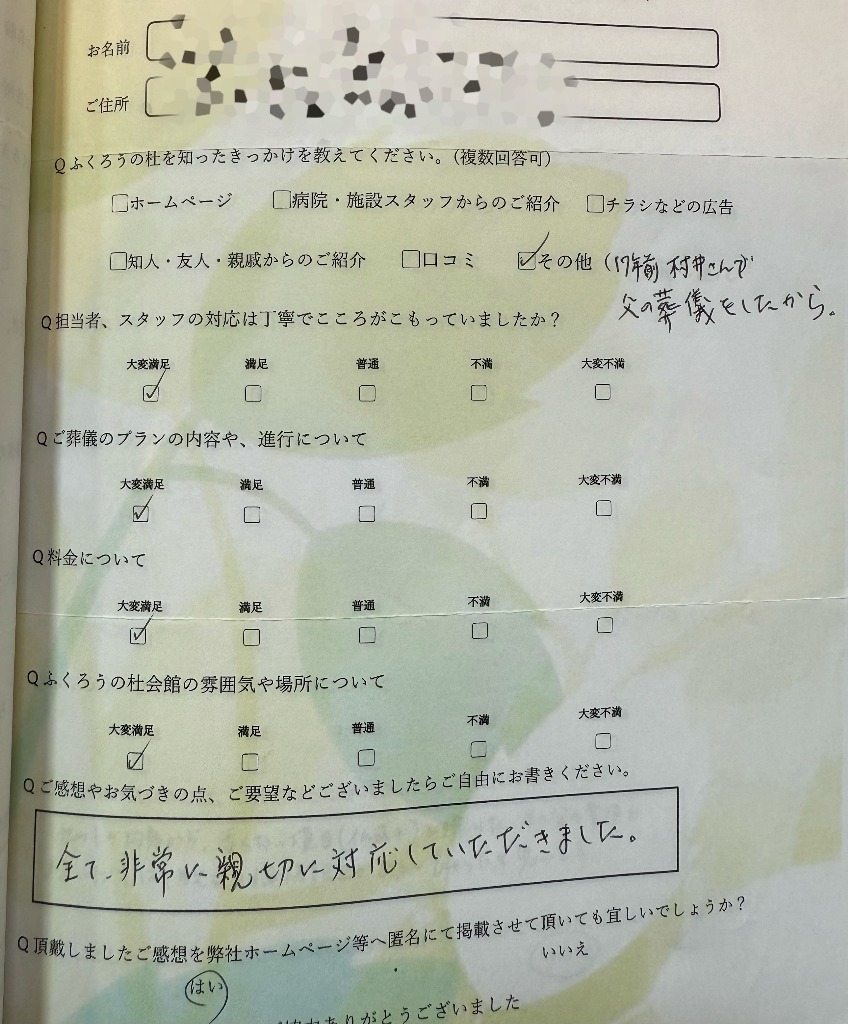 お名前
ご住所
Qふくろうの杜を知ったきっかけを教えてください。(複数回答可)
ホームページ 病院・施設スタッフからのご紹介 チラシなどの広告
知人・友人・親戚からのご紹介 口コミ その他 (17年前 村井さんで
父の葬儀をしたから。
Q担当者、スタッフの対応は丁寧でこころがこもっていましたか?
大変満足 満足 普通 不満 大変不満
Qご葬儀のプランの内容や、進行について
大変満足 満足 普通 不満 大変不満
Q料金について
大変満足 満足 普通 不満 大変不満
Qふくろうの杜会館の雰囲気や場所について
大変満足 満足 普通 不満 大変不満
Qご感想やお気づきの点、ご要望などございましたらご自由にお書きください。
全て、非常に親切に対応していただきました。
Q頂戴しましたご感想を弊社ホームページ等へ匿名にて掲載させて頂いても宜しいでしょうか?
はい いいえ
ありがとうございました